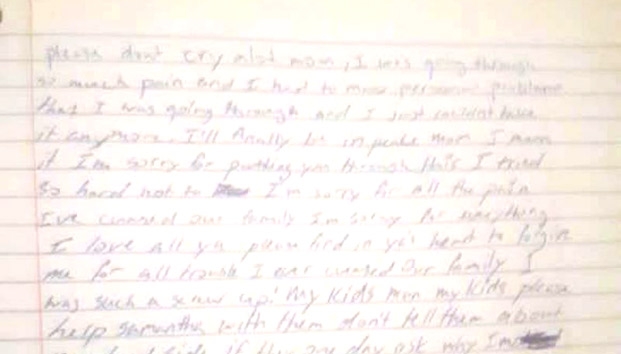 please don't cry alot mom, I was going through
so much pain and I had to many personal problems
that I was going through and I just couldnt take
it anymore. I'll finally be in peace mom I mean
it Im sorry for putting you through this I tried
so hard not to I'm sorry for all the pain
I've caused our family Im sorry for everything
I love all yu please find in your heart to forgive
me for all trouble I ever caused our family I
was such a screw up! My kids mom my kids please
help samantha with them don't tell them about
if they one day ask why